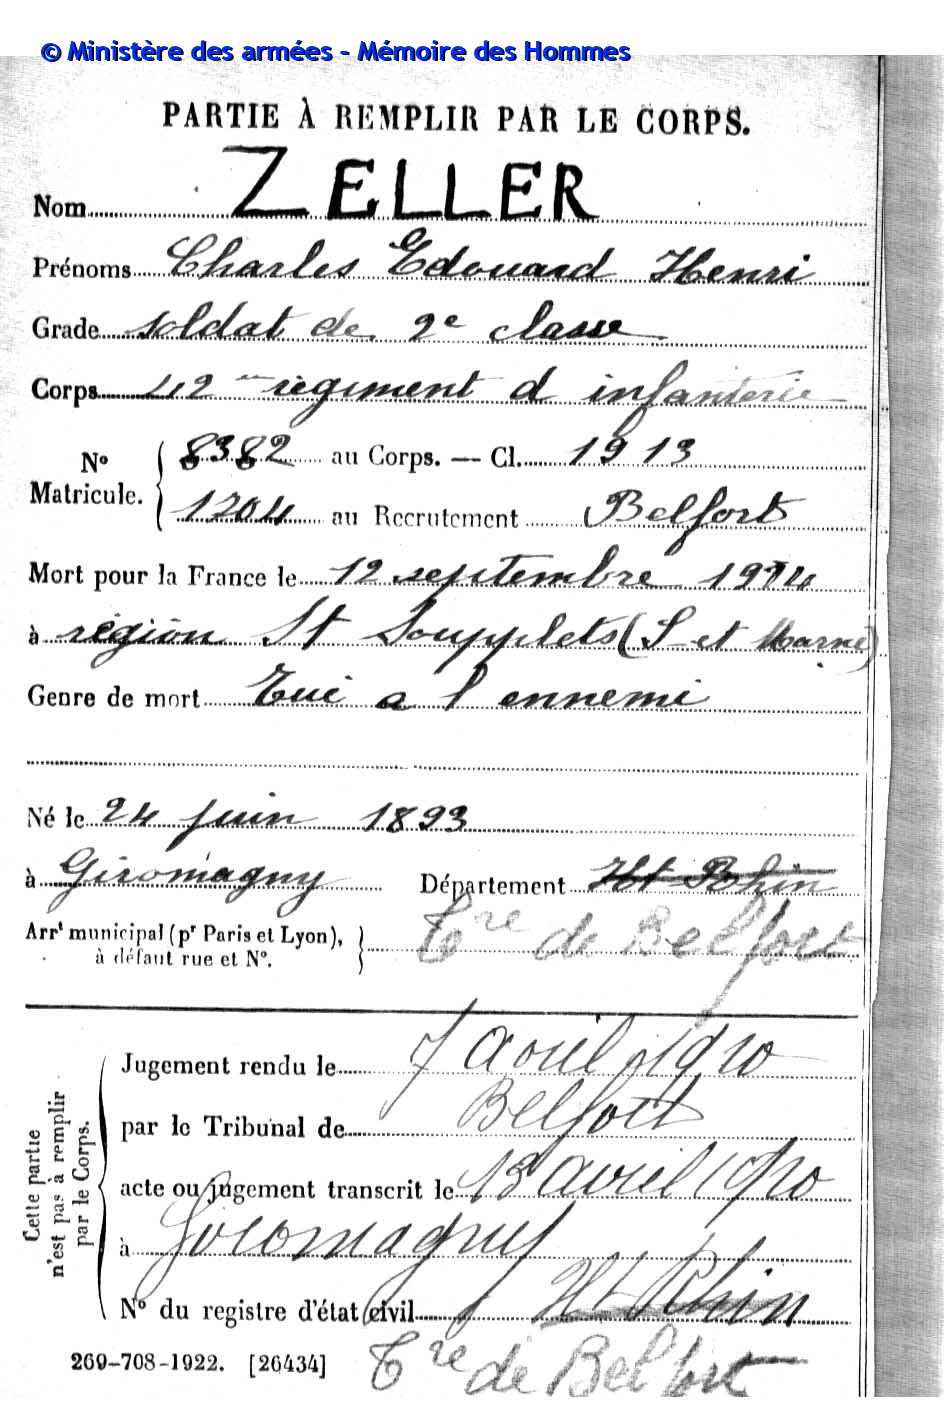 © Ministère des armées - Mémoire des Hommes
PARTIE À REMPLIR PAR LE CORPS.
Nom ZELLER
Prénoms Charles Edouard Henri
Grade soldat de 2e classe
Corps 42me régiment d infanterie
No Matricule. { 8382 au Corps. — Cl. 1913
1204 au Recrutement Belfort
Mort pour la France le 12 septembre 1914
à région St Soupplets (S et Marne)
Genre de mort Tué a l ennemi
Né le 24 juin 1893
à Giromagny Département Ht Rhin
Arrt municipal (pr Paris et Lyon), à défaut rue et No. } Tre de Belfort
Cette partie n'est pas à remplir par le Corps.
Jugement rendu le 7 avril 1920
par le Tribunal de Belfort
acte ou jugement transcrit le 13 avril 1920
à Giromagny
No du registre d'état civil Ht Rhin
269-708-1922. [26434] Tre de Belfort